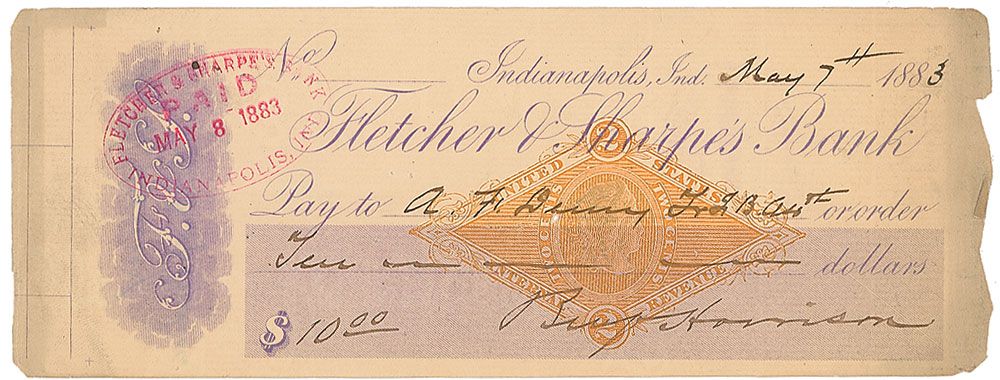 No
Indianapolis, Ind. May 7th 1883
Fletcher & Sharpe's Bank
Pay to A. F. Denny or order
Ten dollars
$ 10.00
Benj Harrison
F. & S. B.
FLETCHER & SHARPE'S BANK
PAID
MAY 8 1883
INDIANAPOLIS, IND.
2
UNITED STATES
TWO CENTS
TWO CENTS
INTERNAL REVENUE
2